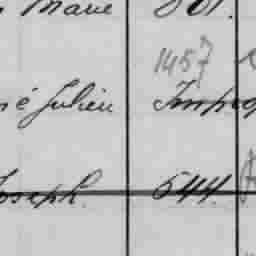 Marie 801.
1457
é Julien Impro
Joseph. 544.